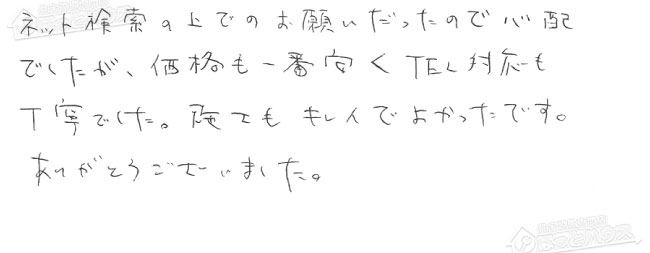 ネット検索の上でのお願いだったので心配
でしたが、価格も一番安くTEL対応も
丁寧でした。施工もキレイでよかったです。
ありがとうございました。